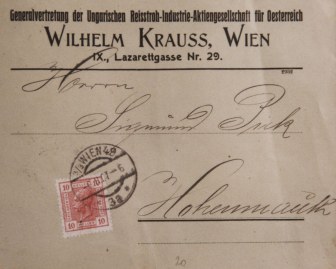 Generalvertretung der Ungarischen Reisstroh-Industrie-Aktiengesellschaft für Oesterreich
WILHELM KRAUSS, WIEN
IX., Lazarettgasse Nr. 29.
Herrn
Sigmund Pick
WIEN 49
10 10
Hohenmauth
20